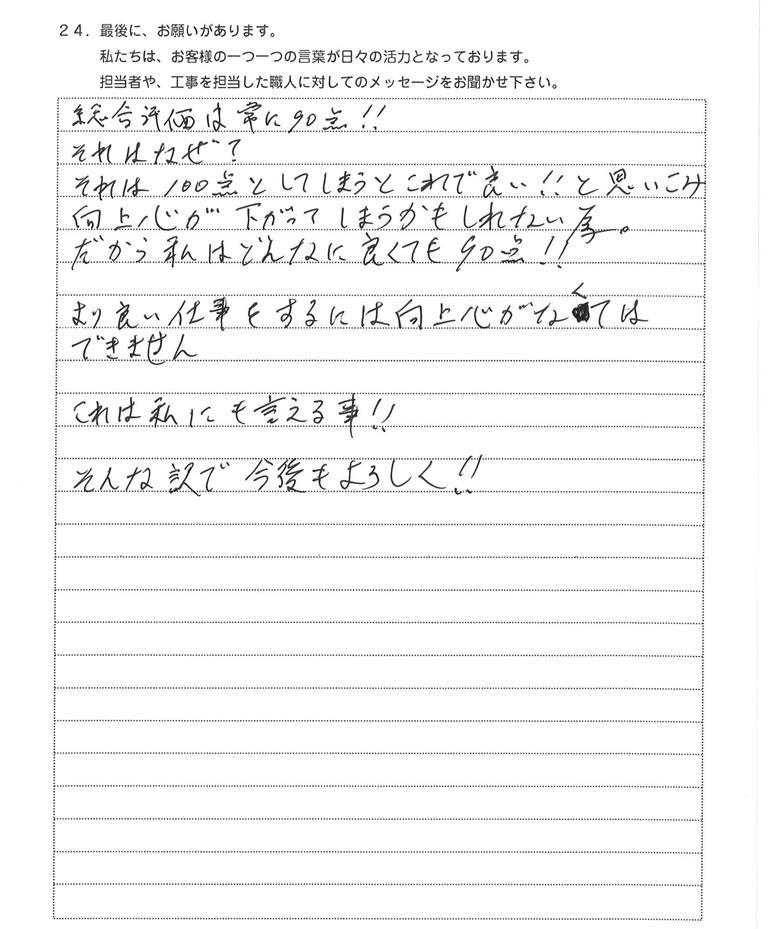 24．最後に、お願いがあります。
私たちは、お客様の一つ一つの言葉が日々の活力となっております。
担当者や、工事を担当した職人に対してのメッセージをお聞かせ下さい。
総合評価は常に90点!!
それはなぜ?
それは100点としてしまうとこれで良い!!と思いこみ
向上心が下がってしまうかもしれない為。
だから私はどんなに良くても90点!!
より良い仕事をするには向上心がなくては
できません
これは私にも言える事!!
そんな訳で今後もよろしく!!